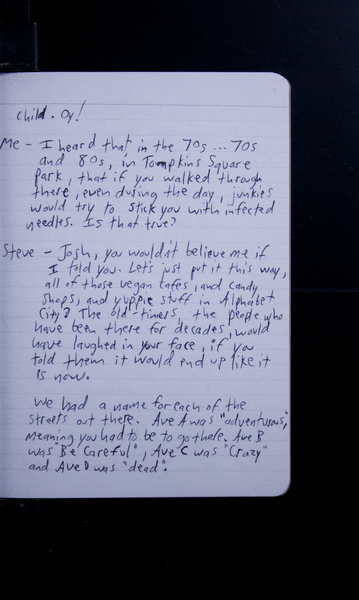 child. Oy!
Me - I heard that in the 70s ... 70s
and 80s, in Tompkins Square
Park, that if you walked through
there, even during the day, junkies
would try to stick you with infected
needles. Is that true?
Steve - Josh, you wouldn't believe me if
I told you. Let's just put it this way,
all of those vegan cafes, and candy
shops, and yuppie stuff in Alphabet
City? The old-timers, the people who
have been there for decades, would
have laughed in your face, if you
told them it would end up like it
is now.
We had a name for each of the
streets out there. Ave A was "adventurous,"
meaning you had to be to go there. Ave B
was "Be Careful", Ave C was "Crazy"
and Ave D was "dead".